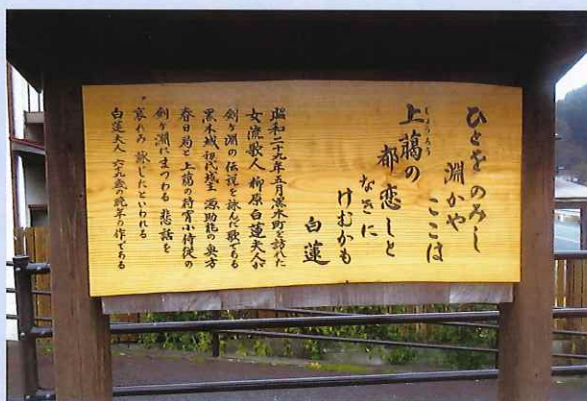 ひとをのみし
淵かや
ここは
上﨟の
じょうろう
都恋しと
なきに
けむかも
白蓮
昭和二十九年五月黒木町を訪れた
女流歌人 柳原白蓮夫人が
剣ヶ淵の伝説を詠んだ歌である
黒木城初代城主 源助能の奥方
春日局と上﨟の待宵小侍従の
剣ヶ淵にまつわる 悲話を
哀れみ 詠じたといわれる
白蓮夫人 六九歳の晩年の作である